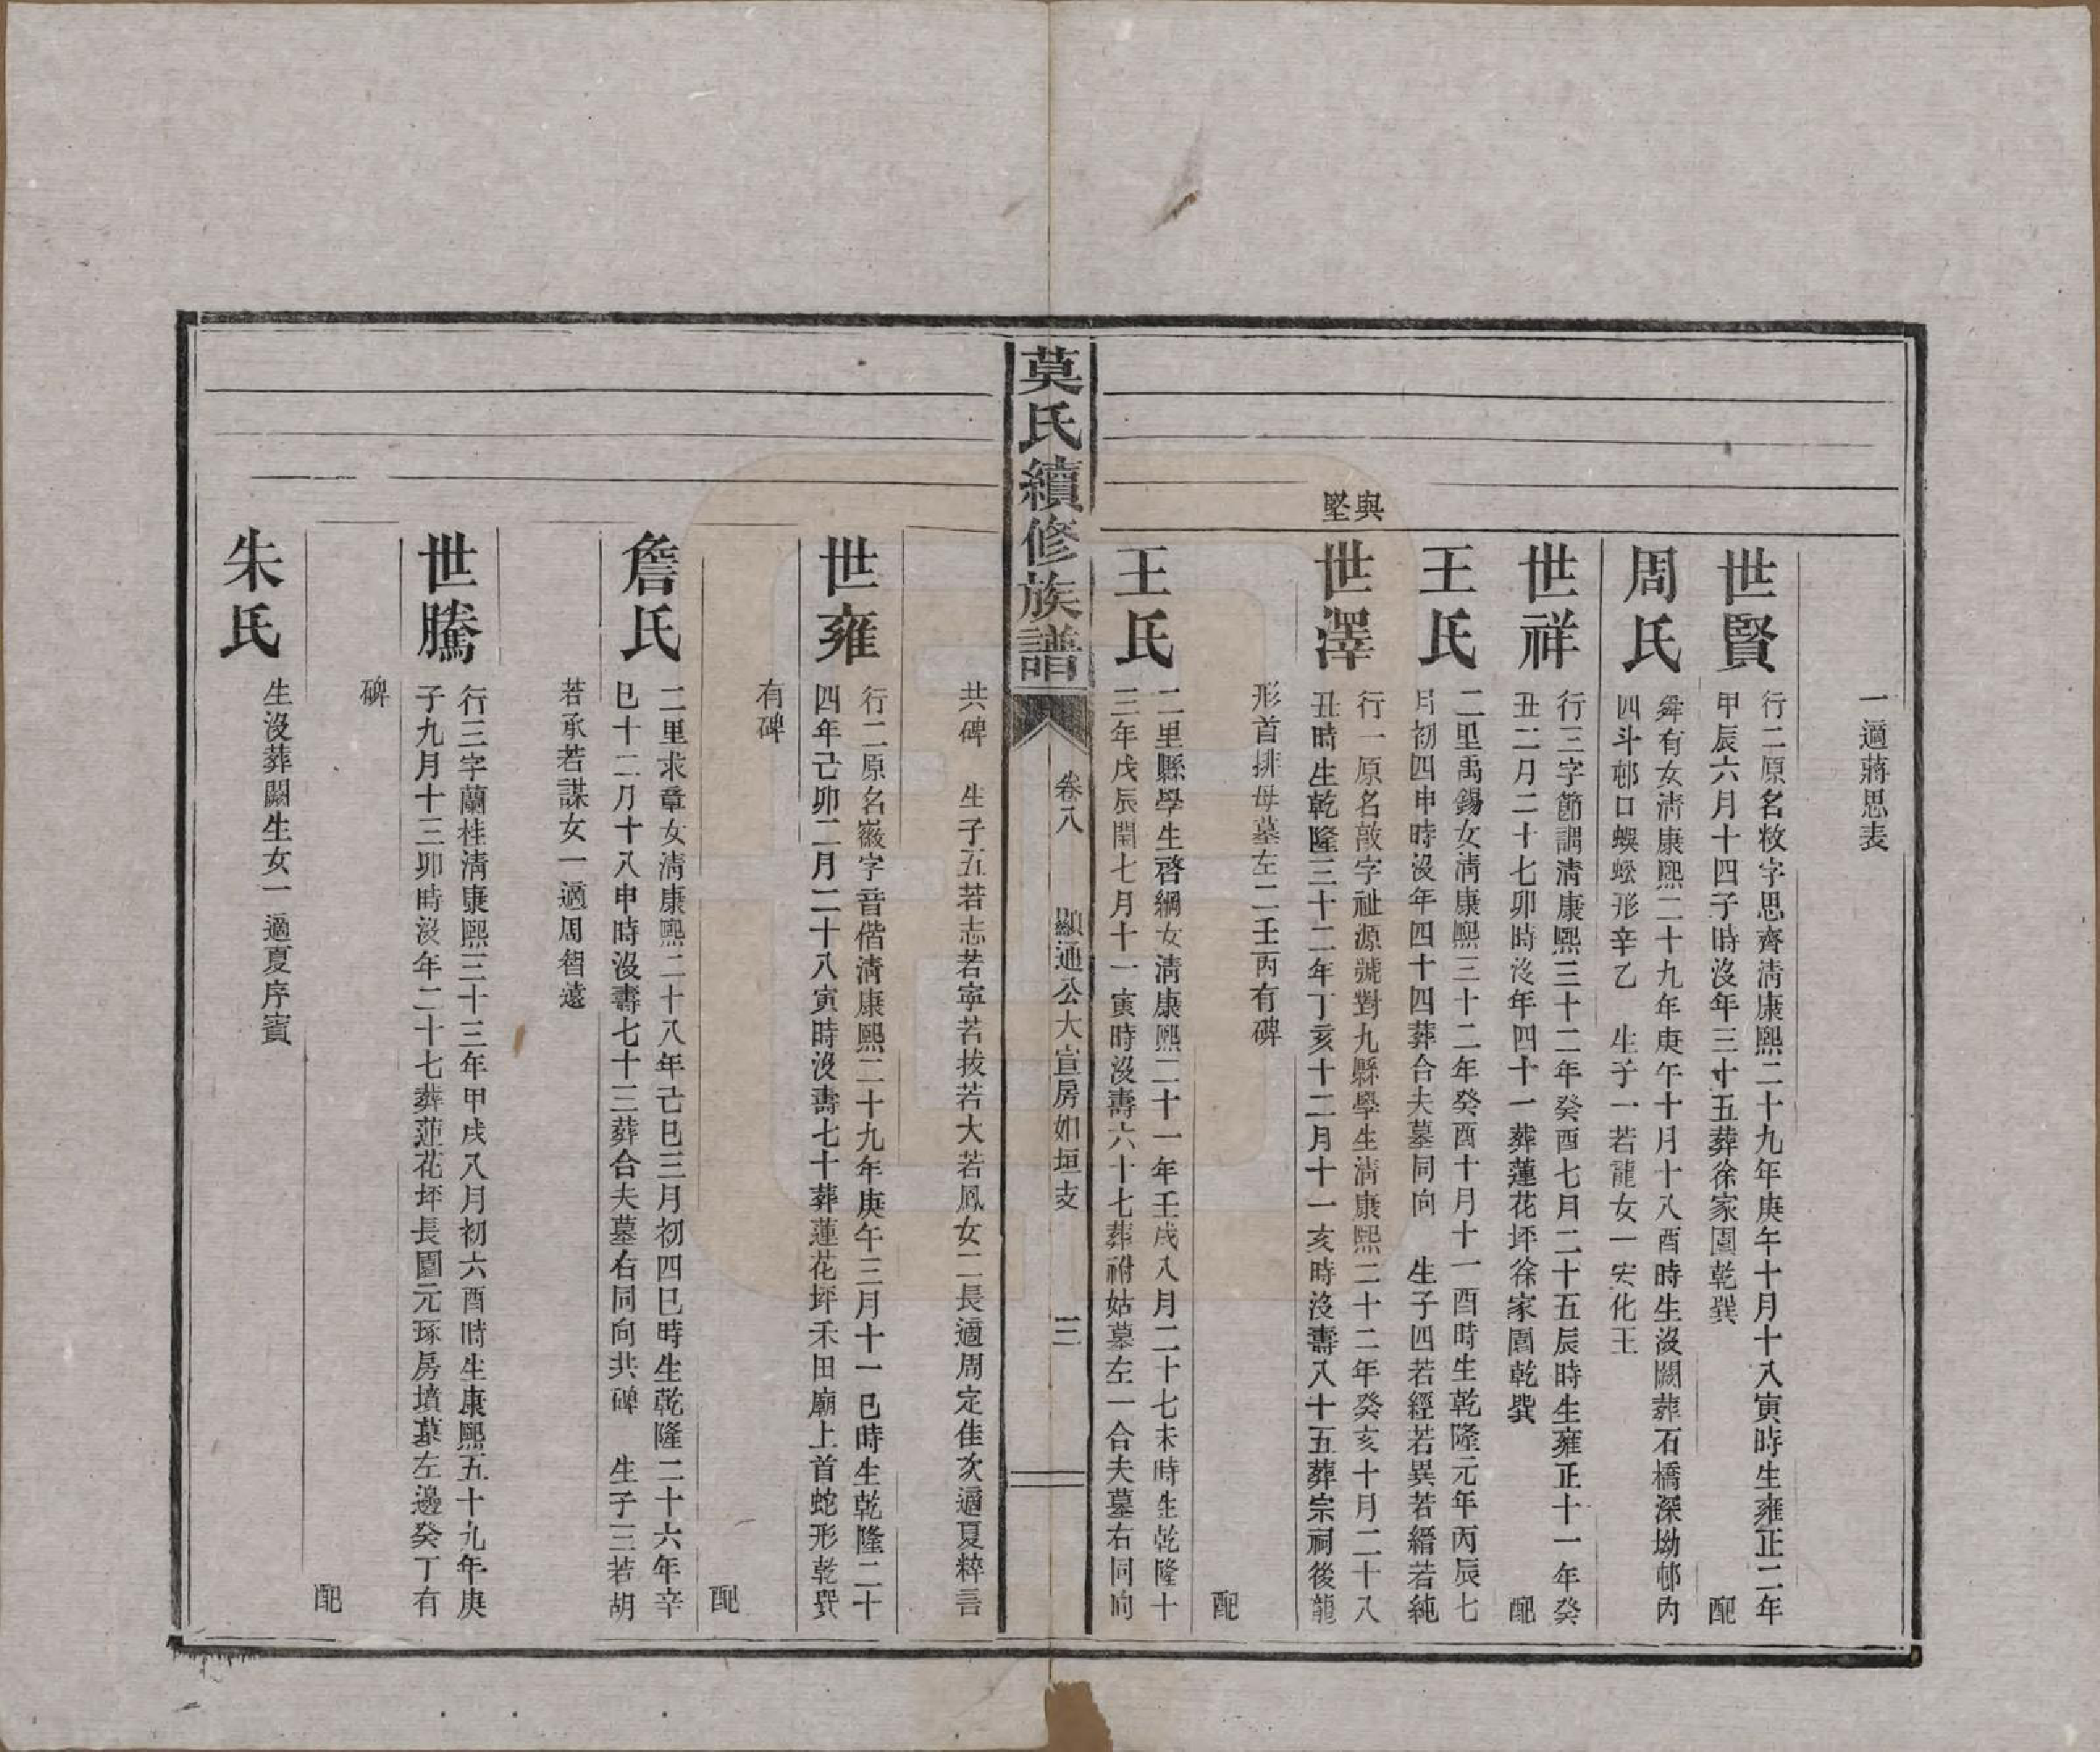 一適蔣思表
世賢
行二原名敉字思齊淸康熙二十九年庚午十月十八寅時生雍正二年
甲辰六月十四子時沒年三十五葬徐家園乾巽 配
周氏
舜有女淸康熙二十九年庚午十月十八酉時生沒闕葬石橋深坳邨內
四斗邨口蜈蚣形辛乙 生子一若龍女一安化王
世祥
行三字節謂淸康熙三十二年癸酉七月二十五辰時生雍正十一年癸
丑二月二十七卯時沒年四十一葬蓮花坪徐家園乾巽 配
王氏
二里禹錫女淸康熙三十二年癸酉十月十一酉時生乾隆元年丙辰七
月初四申時沒年四十四葬合夫墓同向 生子四若經若異若縉若純
與堅
世澤
行一原名敳字祉源號對九縣學生淸康熙二十二年癸亥十月二十八
丑時生乾隆三十二年丁亥十二月十一亥時沒壽八十五葬宗祠後龍
形首排母墓左二壬丙有碑 配
王氏
二里縣學生啓綱女淸康熙二十一年壬戌八月二十七未時生乾隆十
三年戊辰閏七月十一寅時沒壽六十七葬祔姑墓左一合夫墓右同向
莫氏續修族譜 卷八 顯通公大宣房如垣支 三
共碑 生子五若志若寧若拔若大若鳳女二長適周定佳次適夏粹言
世雍
行二原名巖字音偕淸康熙二十九年庚午三月十一巳時生乾隆二十
四年己卯二月二十八寅時沒壽七十葬蓮花坪禾田廟上首蛇形乾巽
有碑 配
詹氏
二里求章女淸康熙二十八年己巳三月初四巳時生乾隆二十六年辛
巳十二月十八申時沒壽七十三葬合夫墓右同向共碑 生子三若胡
若承若謀女一適周智遠
世騰
行三字蘭桂淸康熙三十三年甲戌八月初六酉時生康熙五十九年庚
子九月十三卯時沒年二十七葬蓮花坪長園元琢房墳墓左邊癸丁有
碑 配
朱氏
生沒葬闕生女一適夏序賓